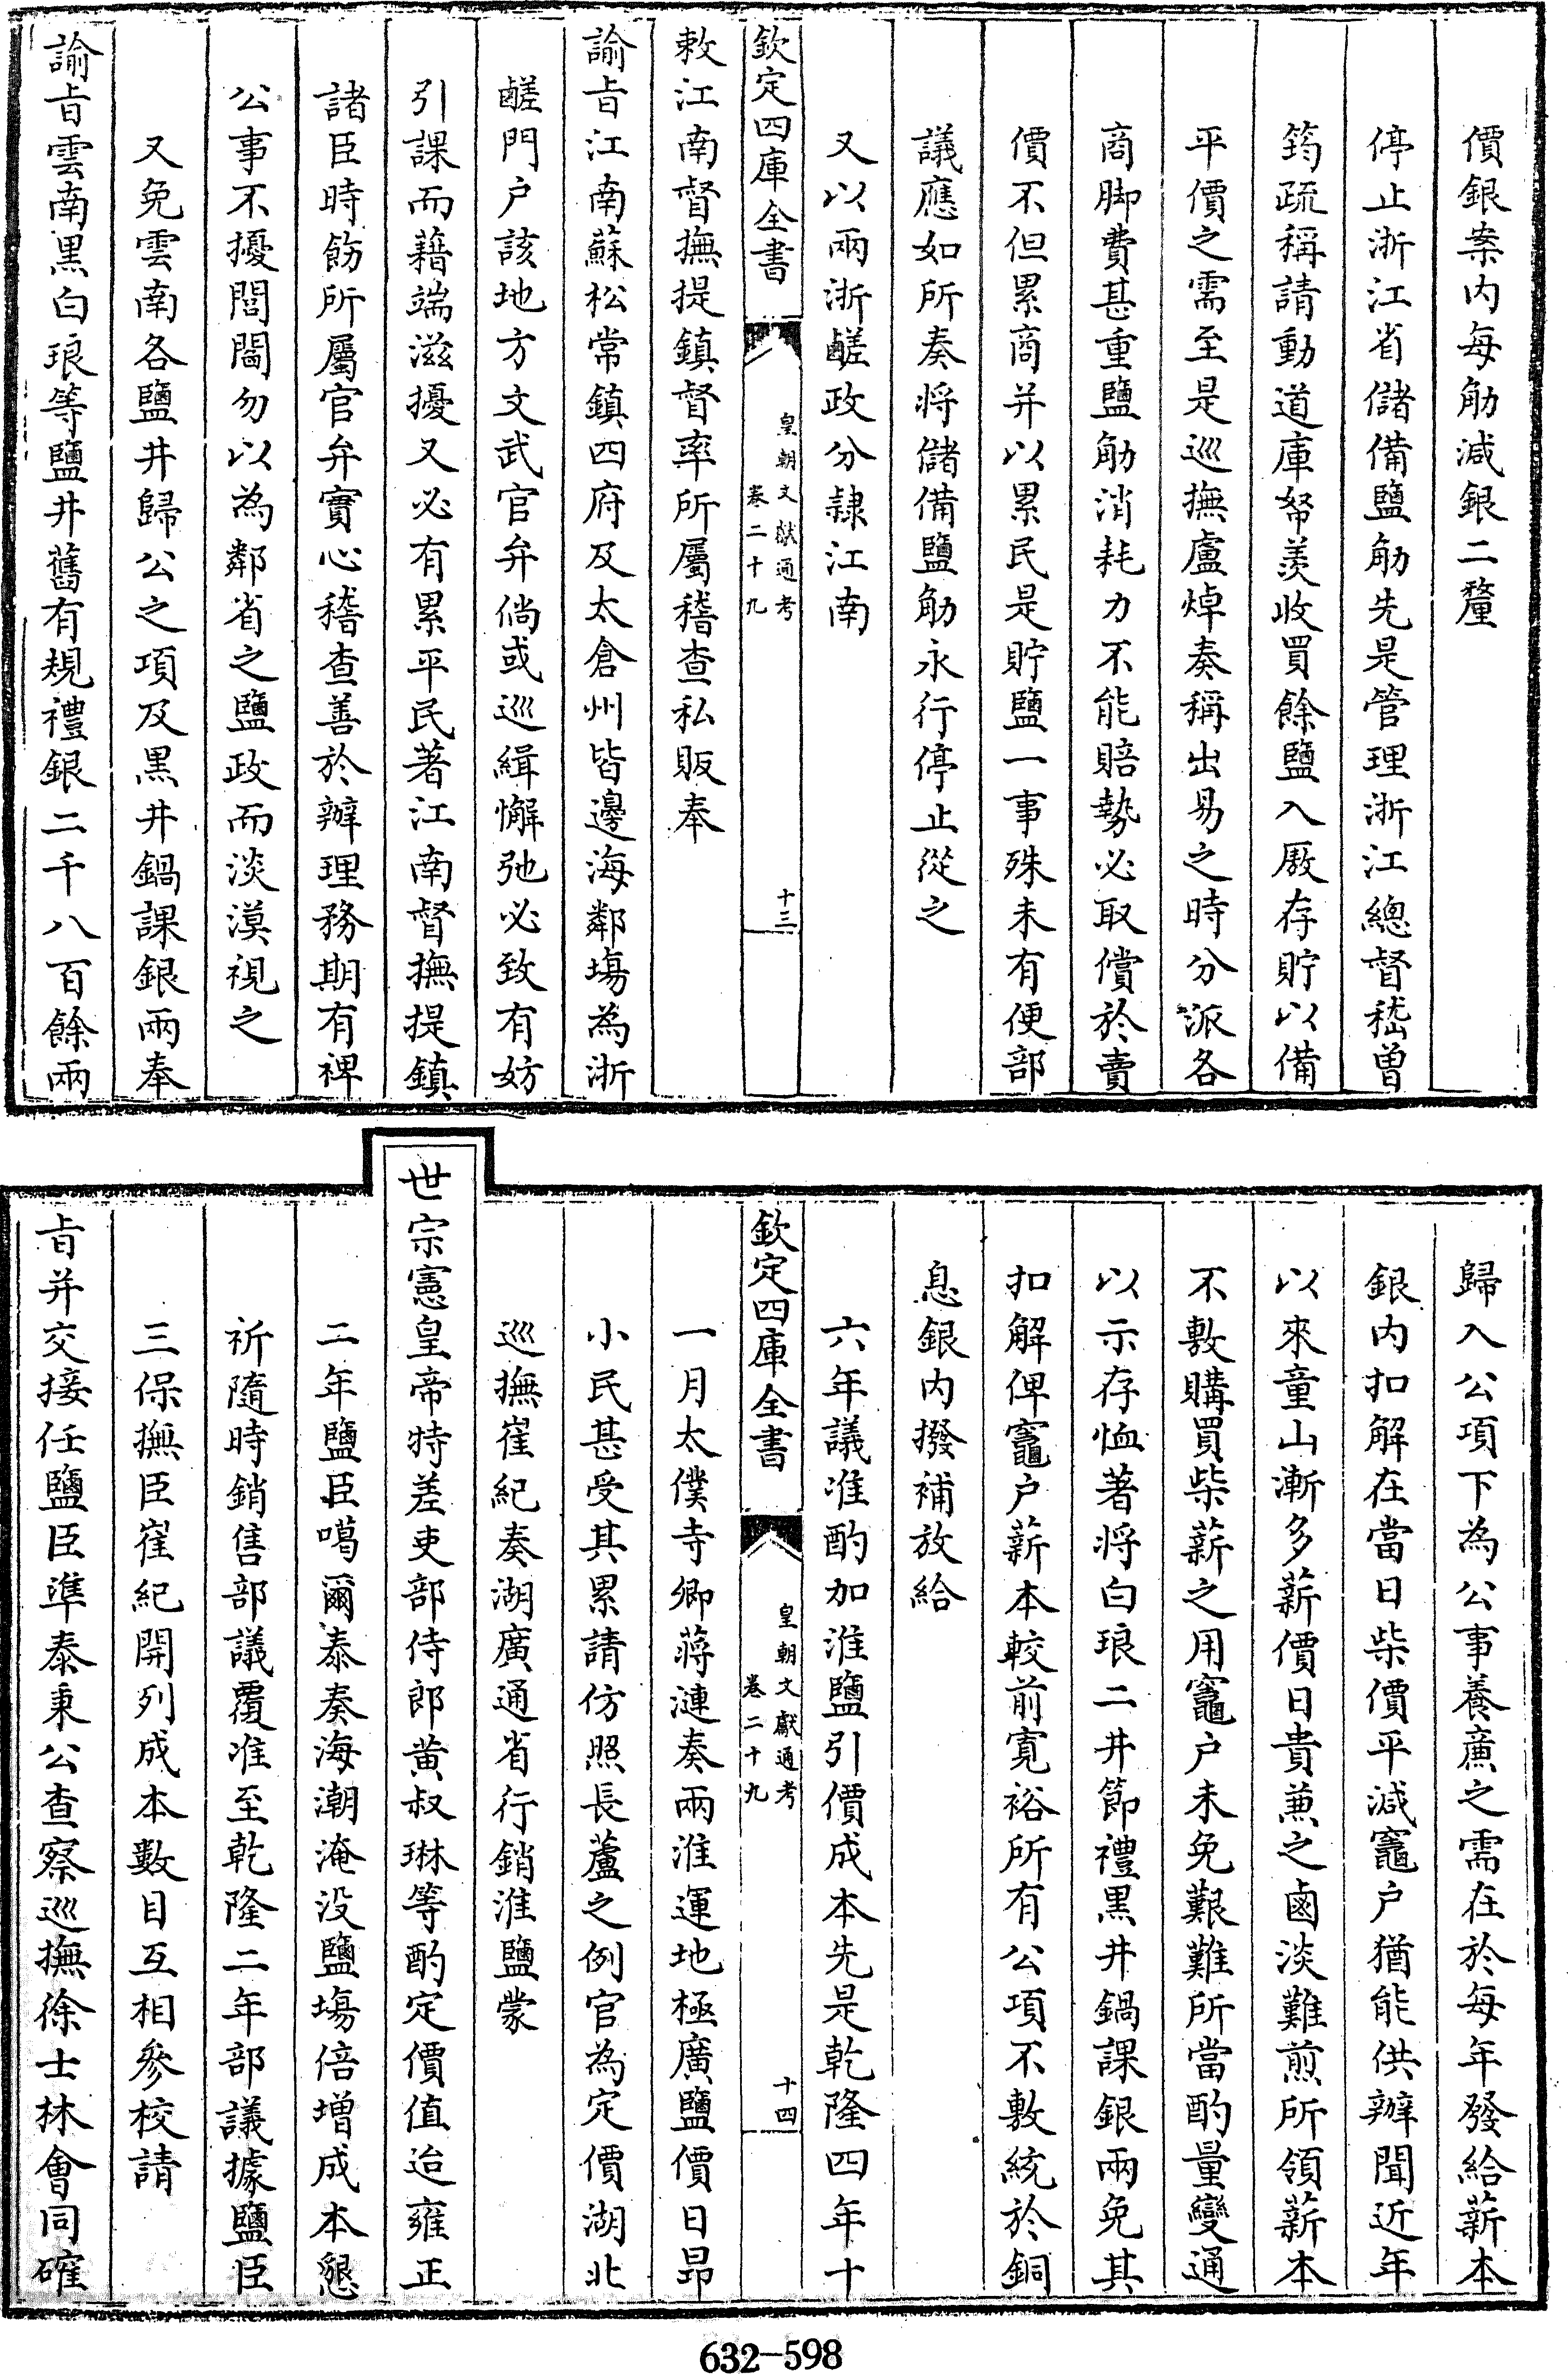 價銀案内每觔減銀二釐
停止浙江省儲備鹽觔先是管理浙江總督嵇曾
筠疏稱請動道庫帑羨收買餘鹽入厫存貯以備
平價之需至是巡撫盧焯奏稱出易之時分派各
商脚費甚重鹽觔消耗力不能賠勢必取償於賣
價不但累商并以累民是貯鹽一事殊未有便部
議應如所奏將儲備鹽觔永行停止從之
又以兩浙鹺政分隷江南
欽定四庫全書
皇朝文獻通考
卷二十九
十三
敕江南督撫提鎮督率所屬稽查私販奉
諭旨江南蘇松常鎮四府及太倉州皆邊海鄰塲為浙
鹺門户該地方文武官弁倘或巡緝懈弛必致有妨
引課而藉端滋擾又必有累平民著江南督撫提鎮
諸臣時飭所屬官弁實心稽查善於辦理務期有裨
公事不擾閭閻勿以為鄰省之鹽政而淡漠視之
又免雲南各鹽井歸公之項及黑井鍋課銀兩奉
諭旨雲南黑白琅等鹽井舊有規禮銀二千八百餘兩
歸入公項下為公事養廉之需在於每年發給薪本
銀内扣解在當日柴價平減竈户猶能供辦聞近年
以來童山漸多薪價日貴兼之鹵淡難煎所領薪本
不敷購買柴薪之用竈户未免艱難所當酌量變通
以示存恤著將白琅二井節禮黑井鍋課銀兩免其
扣解俾竈户薪本較前寛裕所有公項不敷統於銅
息銀内撥補放給
六年議准酌加淮鹽引價成本先是乾隆四年十
欽定四庫全書
皇朝文獻通考
卷二十九
十四
一月太僕寺卿蔣漣奏兩淮運地極廣鹽價日昂
小民甚受其累請仿照長蘆之例官為定價湖北
巡撫崔紀奏湖廣通省行銷淮鹽蒙
世宗憲皇帝特差吏部侍郎黄叔琳等酌定價值迨雍正
二年鹽臣噶爾泰奏海潮淹没鹽塲倍增成本懇
祈隨時銷售部議覆准至乾隆二年部議據鹽臣
三保撫臣崔紀開列成本數目互相參校請
旨并交接任鹽臣準泰秉公查察巡撫徐士林會同確
632-598